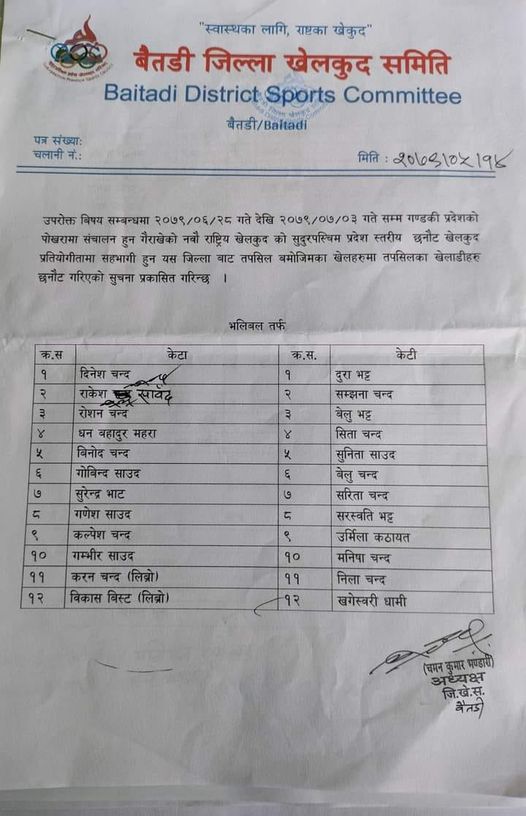 "स्वास्थका लागि, राष्टका खेकुद"
बैतडी जिल्ला खेलकुद समिति
Baitadi District Sports Committee
बैतडी/Baitadi
पत्र संख्याः
चलानी नं.:
मिति : २०७९/०५/१४
उपरोक्त बिषय सम्बन्धमा २०७९/०६/२८ गते देखि २०७९/०७/०३ गते सम्म गण्डकी प्रदेशको
पोखरामा संचालन हुन गैराखेको नवौ राष्ट्रिय खेलकुद को सुदुरपश्चिम प्रदेश स्तरीय छनौट खेलकुद
प्रतियोगीतामा सहभागी हुन यस जिल्ला बाट तपसिल बमोजिमका खेलहरुमा तपसिलका खेलाडीहरु
छनौट गरिएको सुचना प्रकासित गरिन्छ ।
भलिबल तर्फ
क्र.स केटा क्र.स. केटी
१ दिनेश चन्द १ दुरा भट्ट
२ राकेश सावद २ सम्झना चन्द
३ रोशन चन्द ३ बेलु भट्ट
४ धन बहादुर महरा ४ सिता चन्द
५ बिनोद चन्द ५ सुनिता साउद
६ गोबिन्द साउद ६ बेलु चन्द
७ सुरेन्द्र भाट ७ सरिता चन्द
८ गणेश साउद ८ सरस्वति भट्ट
९ कल्पेश चन्द ९ उर्मिला कठायत
१० गम्भीर साउद १० मनिषा चन्द
११ करन चन्द (लिब्रो) ११ निला चन्द
१२ विकास बिस्ट (लिब्रो) १२ खगेस्वरी धामी
(चमन कुमार भण्डारी)
अध्यक्ष
जि.खे.स.
बैतडी